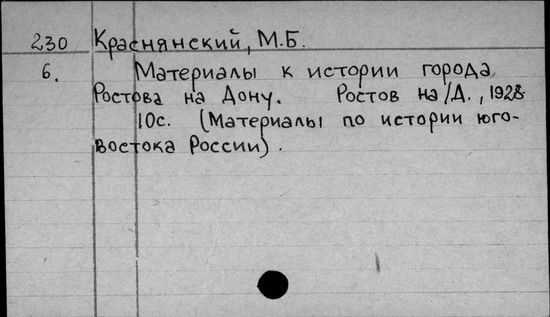 230 Краснянский, М.Б.
6. Материалы к истории города
Ростова на Дону. Ростов на/Д., 1928
10с. (Материалы по истории юго-
востока России).